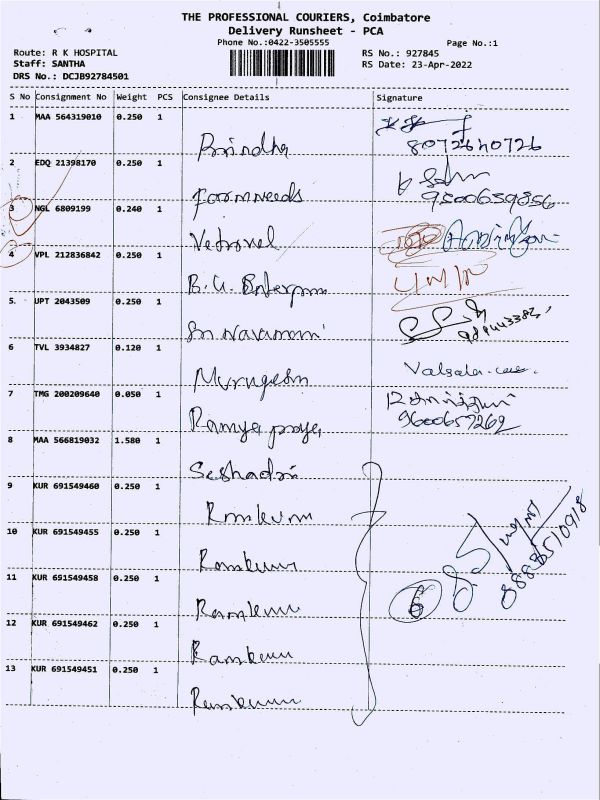 THE PROFESSIONAL COURIERS, Coimbatore
Delivery Runsheet - PCA
Phone No.:0422-3505555
Page No.:1
Route: R K HOSPITAL
RS No.: 927845
Staff: SANTHA
RS Date: 23-Apr-2022
DRS No.: DCJB92784501
S No Consignment No Weight PCS Consignee Details Signature
1 MAA 564319010 0.250 1
Brindha 8072640726
2 EDQ 21398170 0.250 1
Formneeds 9500659856
3 NGL 6809199 0.240 1
Vetrivel
4 VPL 212836842 0.250 1
B.G. Enterprises
5. UPT 2043509 0.250 1
Sri Narayanan
6 TVL 3934827 0.120 1
Murugesan Valsala
7 TMG 200209640 0.050 1
Ramya 9600657262
8 MAA 566819032 1.580 1
Seshadri
9 KUR 691549460 0.250 1
Ramkumar
10 KUR 691549455 0.250 1
Ramkumar
11 KUR 691549458 0.250 1
Ramkumar
6
8888510918
12 KUR 691549462 0.250 1
Ramkumar
13 KUR 691549451 0.250 1
Ramkumar